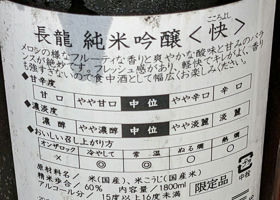 こころよし
長龍 純米吟醸<快>
メロンの様なフルーティな香りと爽やかな酸味と甘みのバラ
ンスが絶妙です。フレッシュ感があり、軽快でキレがよく、香り
も強すぎないので食中酒として幅広くお楽しみください。
■甘辛度
甘口 やや甘口 中位 やや辛口 辛口
■濃淡度
濃 濃醇 やや濃醇 中位 やや淡麗 淡麗
■おいしい召し上がり方
オンザロック 冷やして 常温 ぬる燗 熱燗
原材料名/米(国産)、米こうじ(国産米)
精米歩合/60% 内容量/1800ml
アルコール分/15度以上16度未満
限定品